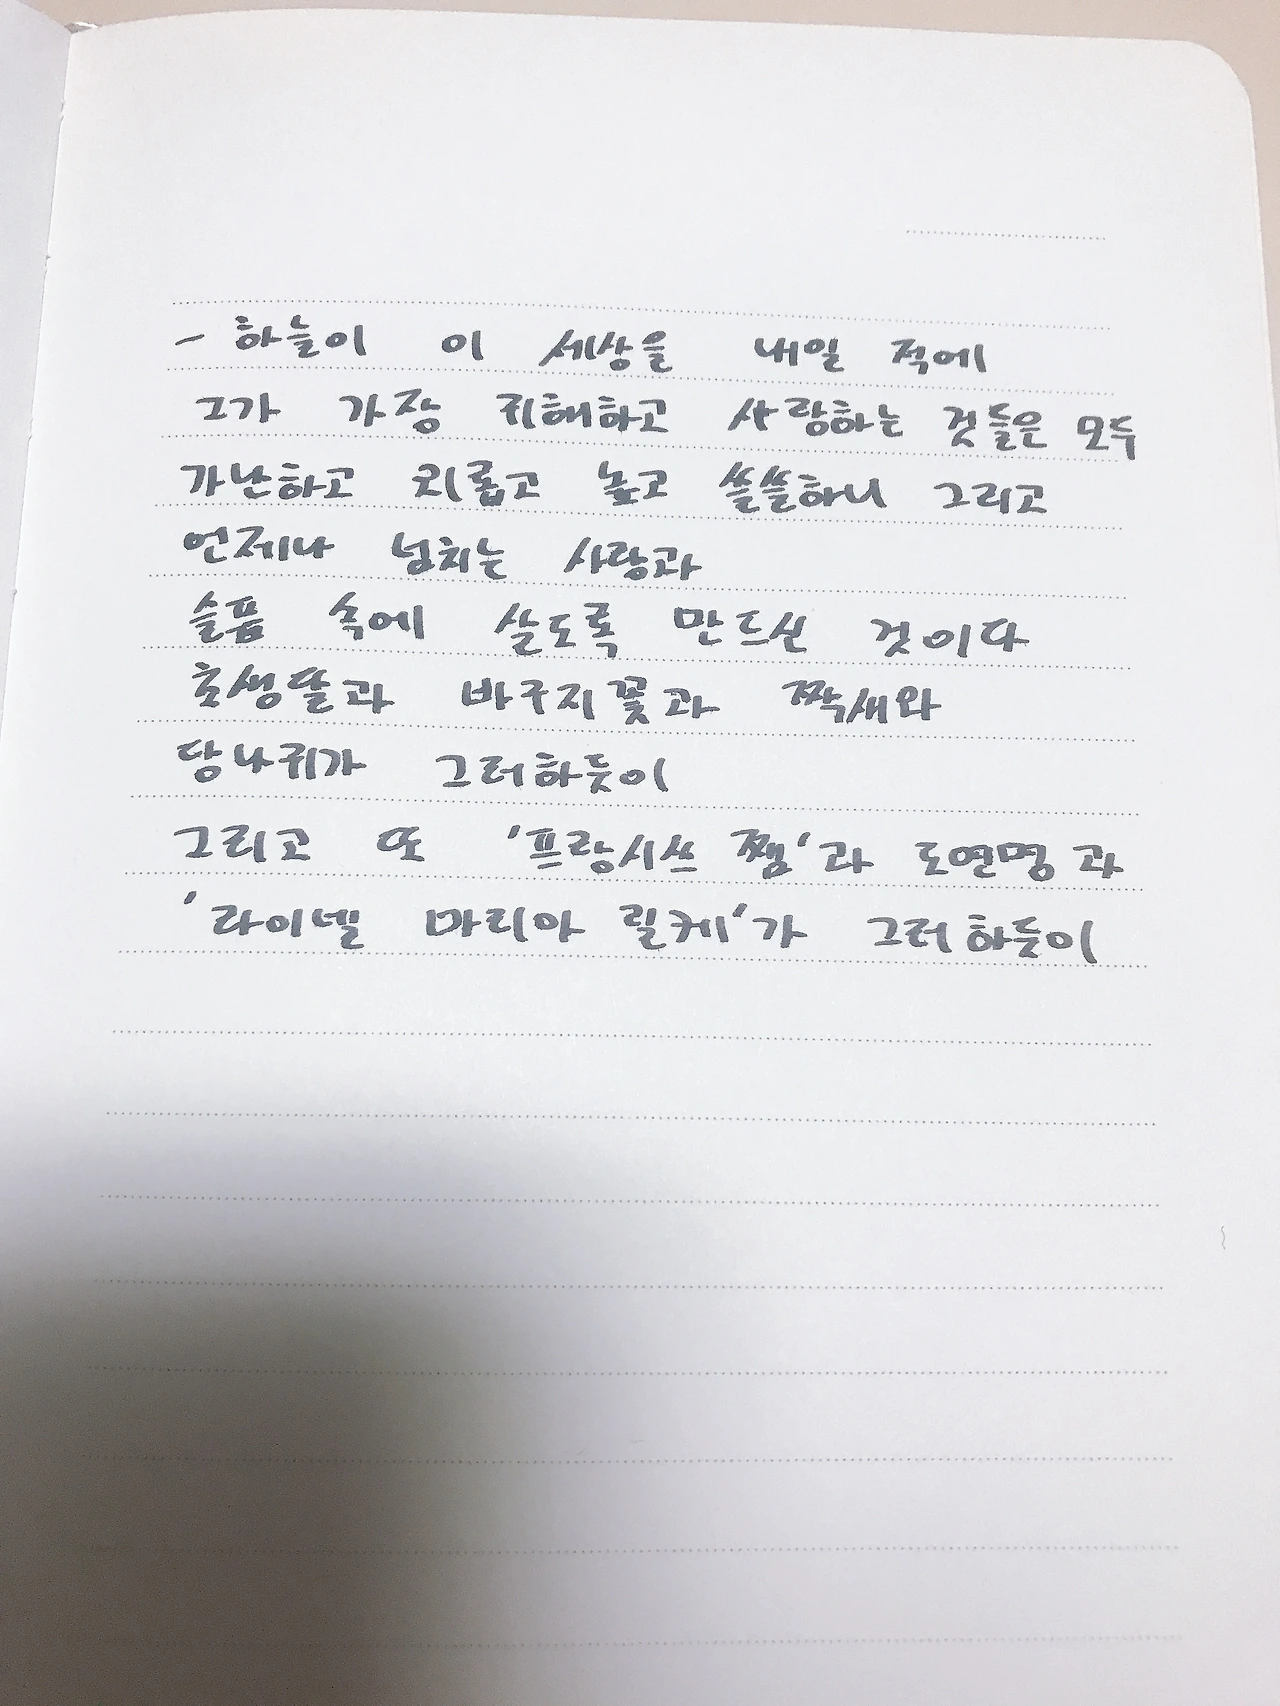 - 하늘이 이 세상을 내일 적에
그가 가장 귀해하고 사랑하는 것들은 모두
가난하고 외롭고 높고 쓸쓸하니 그리고
언제나 넘치는 사랑과
슬픔 속에 살도록 만드신 것이다
초생딸과 바구지꽃과 짝새와
당나귀가 그러하듯이
그리고 또 '프랑시쓰 쨈'과 도연명과
'라이넬 마리아 릴케'가 그러하듯이